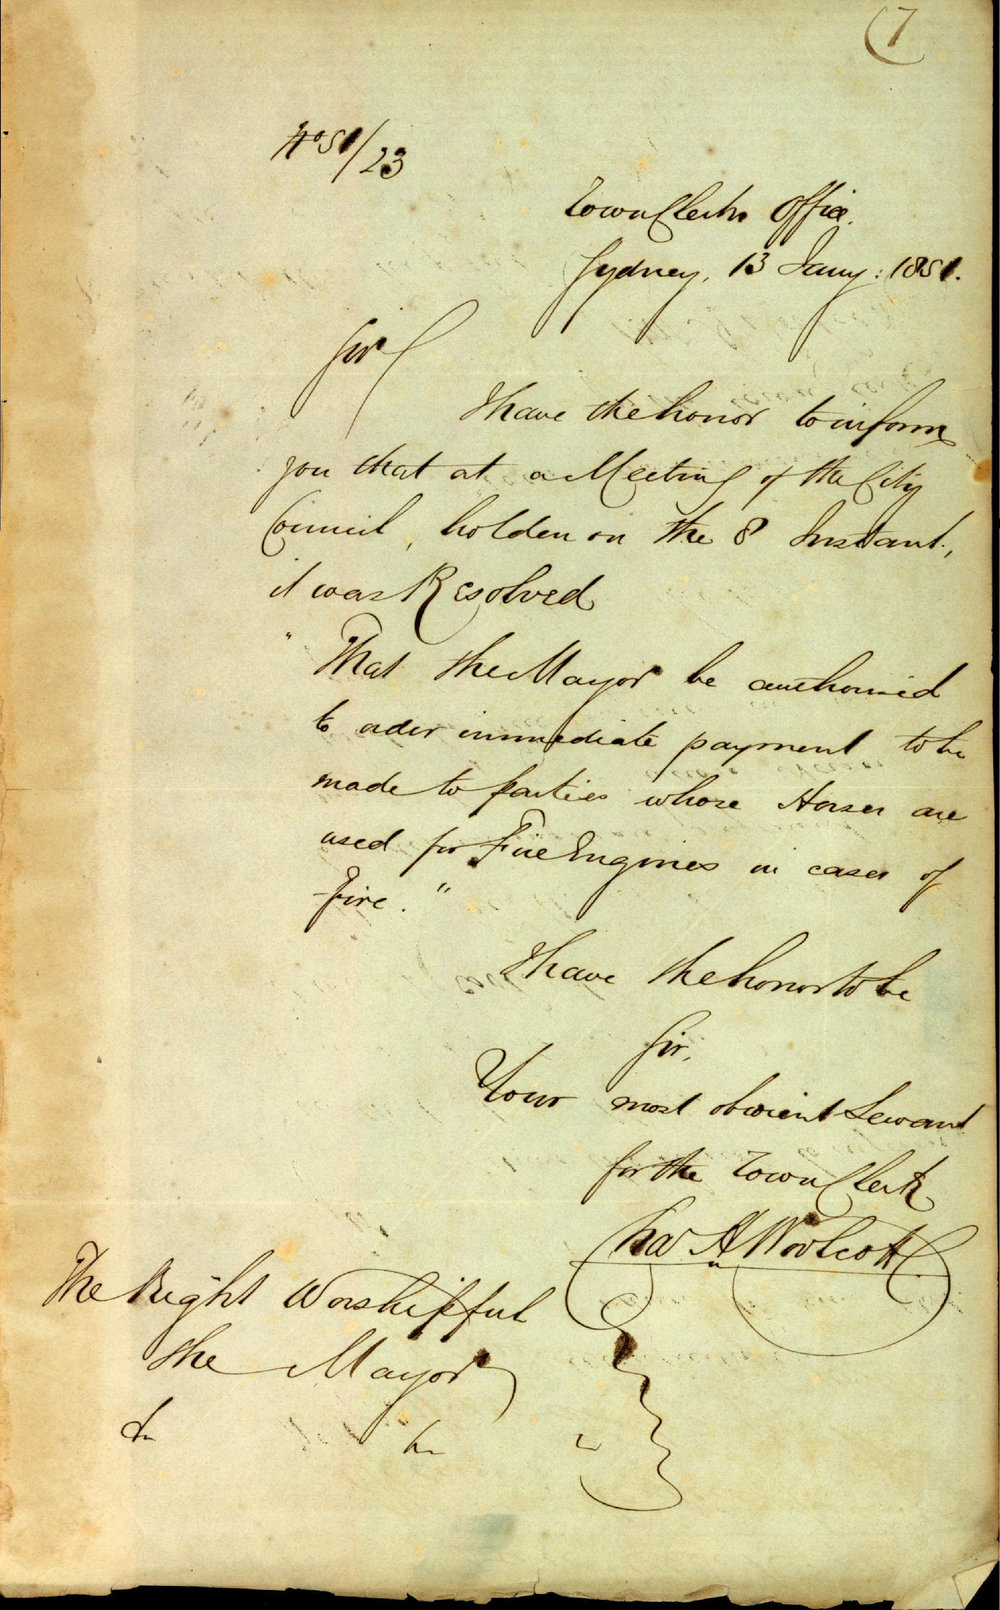 7
No 51/23
Town Clerks Office.
Sydney, 13 Jany: 1851.
Sir
I have the honor to inform
you that at a Meeting of the City
Council, holden on the 8 Instant,
it was Resolved
"That the Mayor be authorised
to order immediate payment to be
made to parties whose Horses are
used for Fire Engines in cases of
Fire."
I have the honor to be
Sir,
Your most obedient Servant
for the Town Clerk
Chas H Woolcott
The Right Worshipful
the Mayor
&c &c